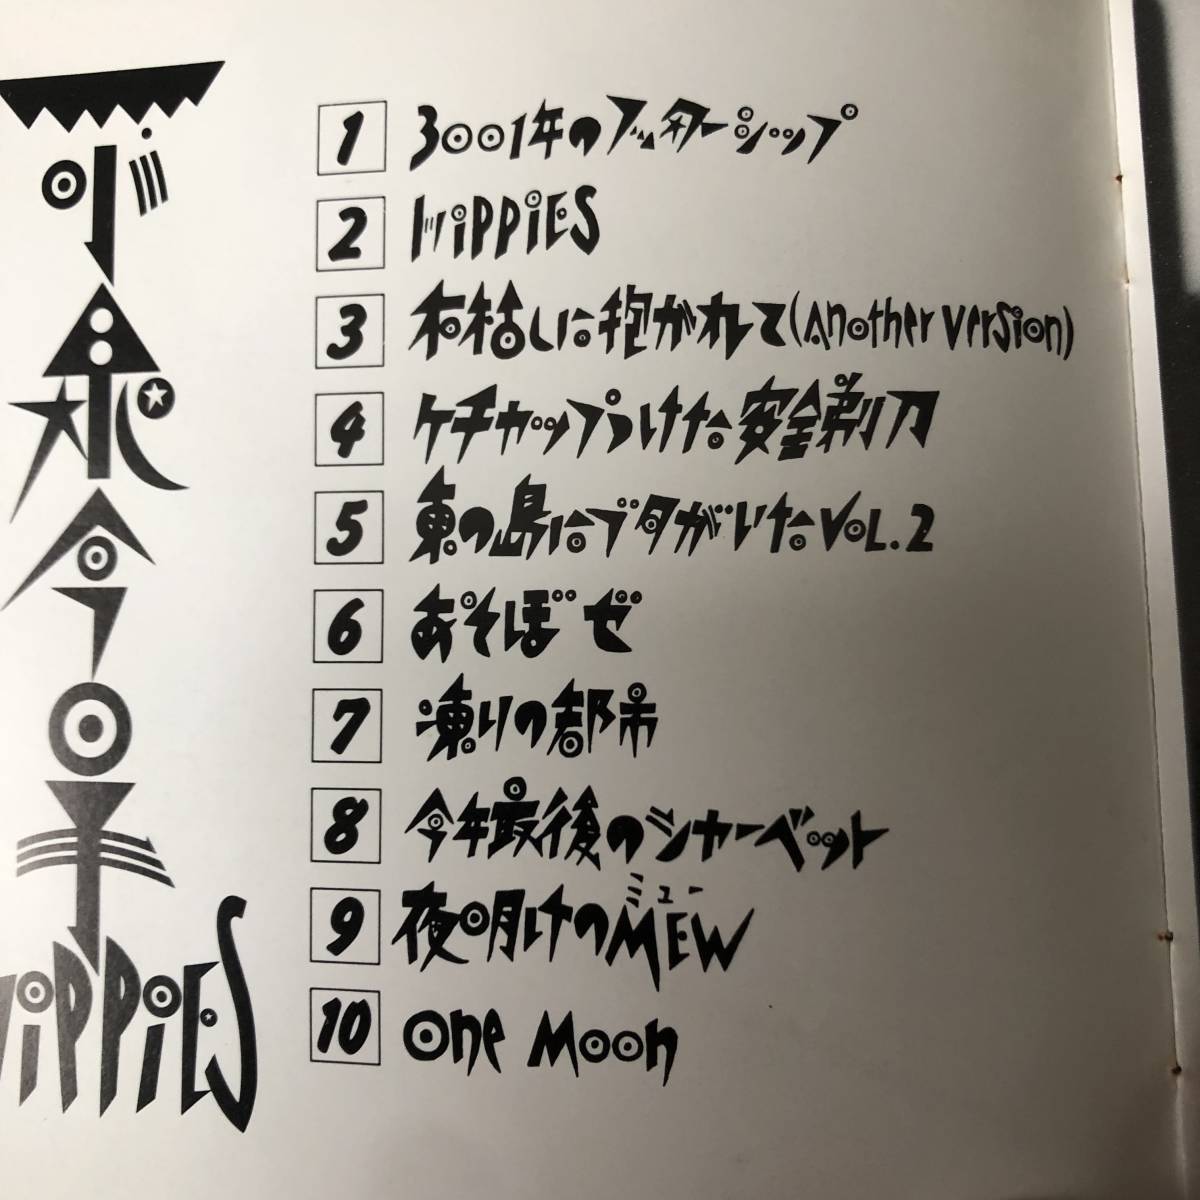 小泉今日子
HIPPIES
1 3001年のスターシップ
2 HIPPIES
3 木枯しに抱かれて(Another Version)
4 ケチャップつけた安全剃刀
5 東の島にブタがいたVOL.2
6 あそぼぜ
7 凍りの都市
8 今年最後のシャーベット
9 夜明けのMEW
ミュー
10 One Moon